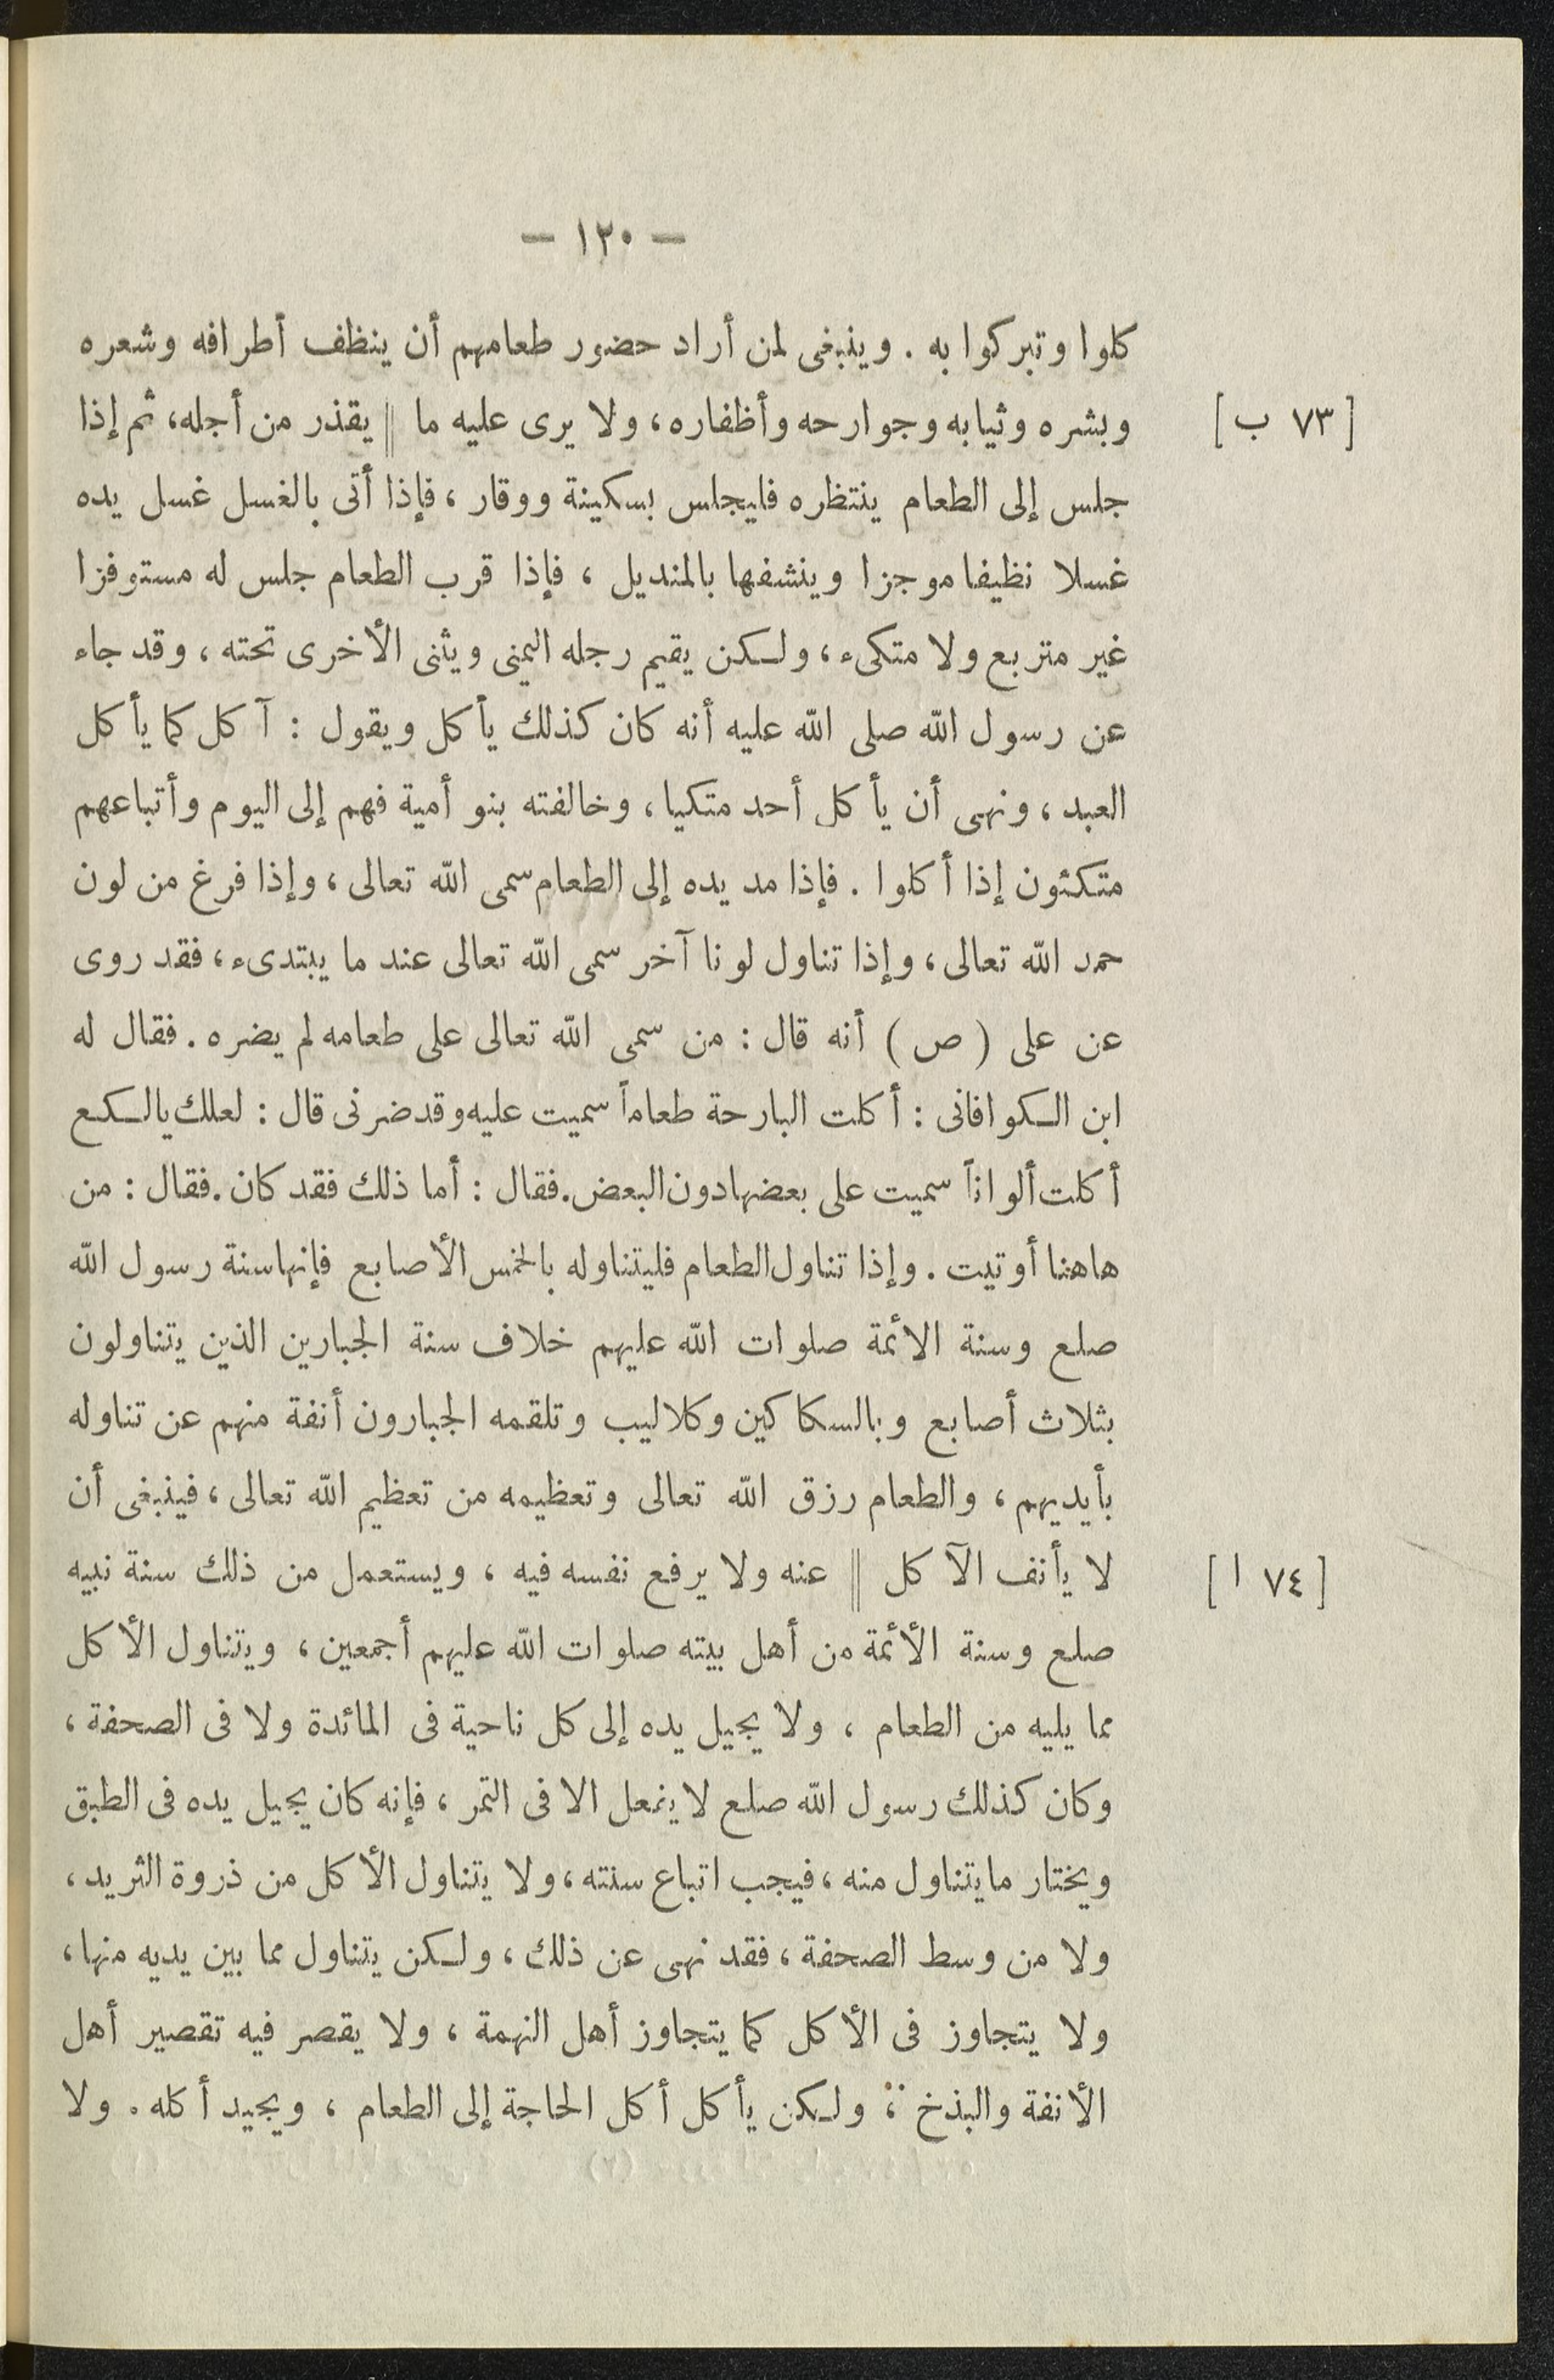 — ١٢٠ —
كلوا وتبركوا به . وينبغى لمن أراد حضور طعامهم أن ينظف أطرافه وشعره
[ ٧٣ ب ]
وبشره وثيابه وجوارحه وأظفاره، ولا يرى عليه ما || يقذر من أجله، ثم إذا
جلس إلى الطعام ينتظره فليجلس بسكينة ووقار ، فإذا أتى بالغسل غسل يده
غسلا نظيفا موجزا وينشفها بالمنديل ، فإذا قرب الطعام جلس له مستوفزا
غير متربع ولا متكىء ، ولكن يقيم رجله اليمنى ويثنى الأخرى تحته ، وقد جاء
عن رسول الله صلى الله عليه أنه كان كذلك يأكل ويقول : آكل كما يأكل
العبد ، ونهى أن يأكل أحد متكيا ، وخالفته بنو أمية فهم إلى اليوم وأتباعهم
متكئون إذا أكلوا . فإذا مد يده إلى الطعام سمى الله تعالى ، وإذا فرغ من لون
حمد الله تعالى ، وإذا تناول لونا آخر سمى الله تعالى عند ما يبتدىء ، فقد روى
عن على ( ص ) أنه قال : من سمى الله تعالى على طعامه لم يضره . فقال له
ابن الكوافانى : أكلت البارحة طعاماً سميت عليه وقد ضرنى قال : لعلك يالكع
أكلت ألواناً سميت على بعضها دون البعض . فقال : أما ذلك فقد كان . فقال : من
هاهنا أوتيت . وإذا تناول الطعام فليتناوله بالخمس الأصابع فإنها سنة رسول الله
صلع وسنة الائمة صلوات الله عليهم خلاف سنة الجبارين الذين يتناولون
بثلاث أصابع وبالسكاكين وكلاليب وتلقمه الجبارون أنفة منهم عن تناوله
بأيديهم ، والطعام رزق الله تعالى وتعظيمه من تعظيم الله تعالى ، فينبغى أن
[ ٧٤ ا ]
لا يأنف الآكل || عنه ولا يرفع نفسه فيه ، ويستعمل من ذلك سنة نبيه
صلع وسنة الأئمة من أهل بيته صلوات الله عليهم أجمعين ، ويتناول الأكل
مما يليه من الطعام ، ولا يجيل يده إلى كل ناحية فى المائدة ولا فى الصحفة ،
وكان كذلك رسول الله صلع لا يفعل الا فى التمر ، فإنه كان يجيل يده فى الطبق
ويختار ما يتناول منه ، فيجب اتباع سنته ، ولا يتناول الأكل من ذروة الثريد ،
ولا من وسط الصحفة ، فقد نهى عن ذلك ، ولكن يتناول مما بين يديه منها ،
ولا يتجاوز فى الأكل كما يتجاوز أهل النهمة ، ولا يقصر فيه تقصير أهل
الأنفة والبذخ ، ولكن يأكل أكل الحاجة إلى الطعام ، ويجيد أكله . ولا